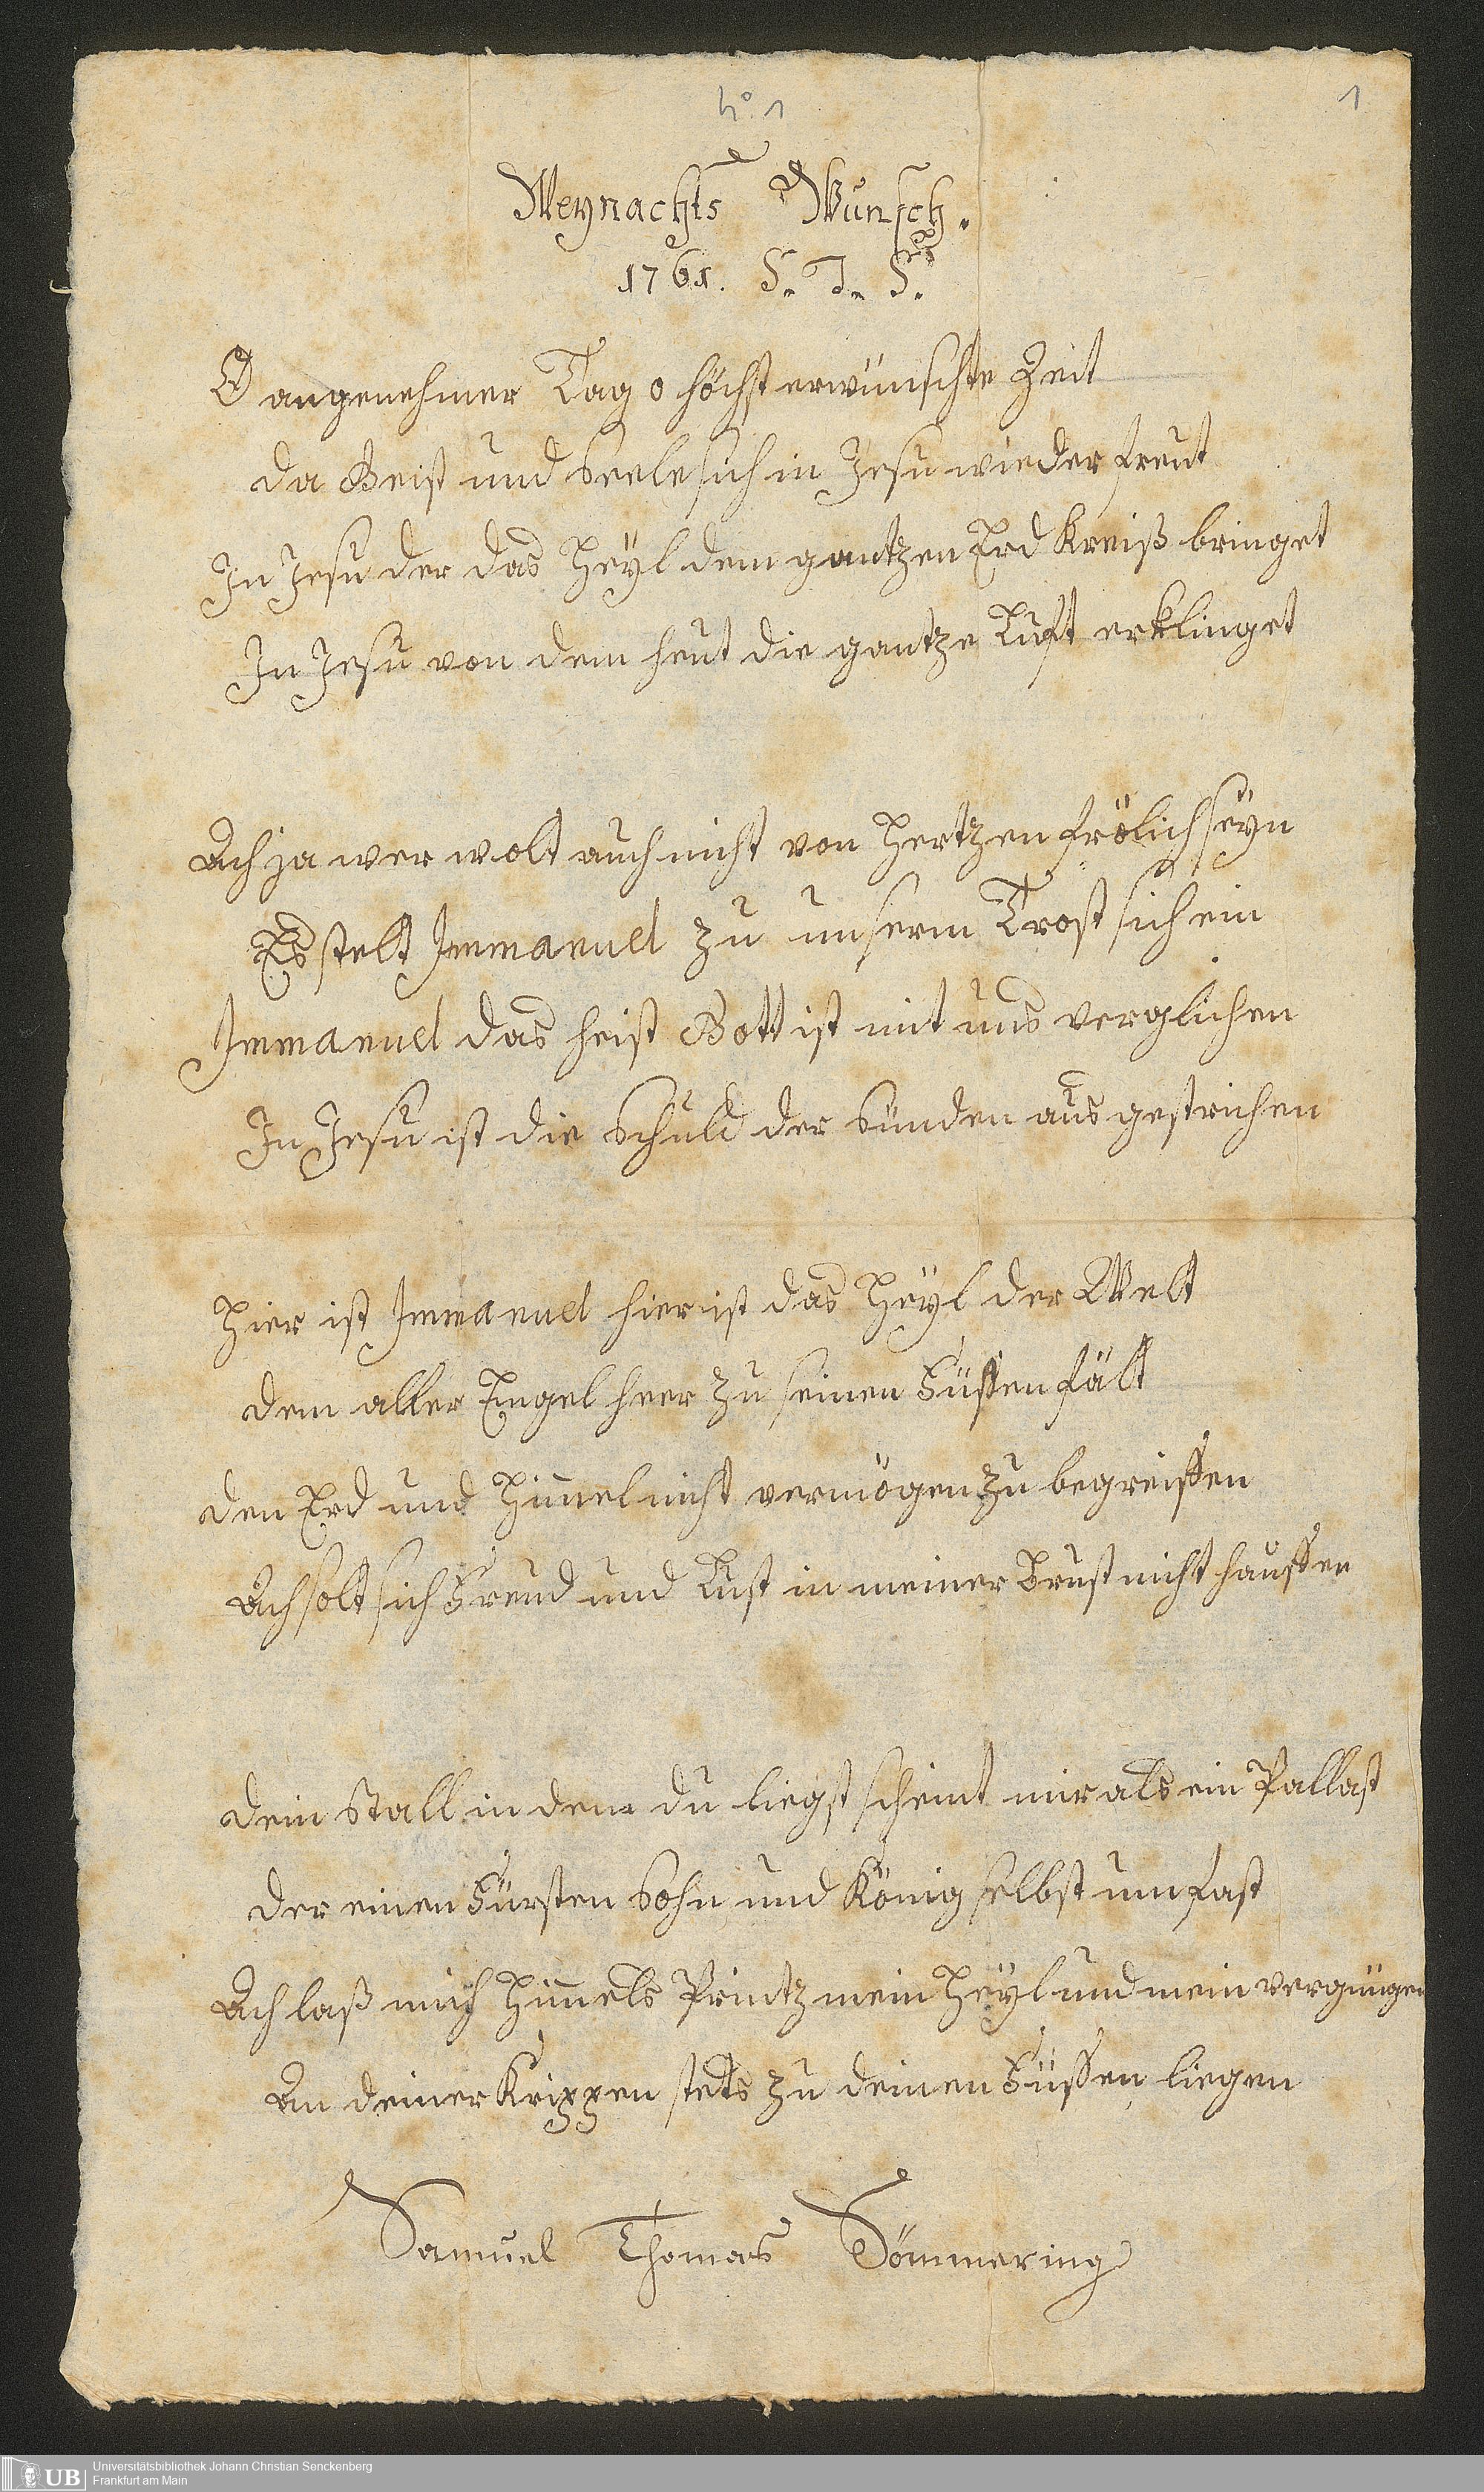 No. 1
1
Weynachts Wunsch.
1761. S. T. S.
O angenehmer Tag o höchst erwünschte Zeit
da Geist und Seele sich in Jesu wieder freut
In Jesu der das Heÿl dem gantzen Erd Kreiß bringet
In Jesu von dem heut die gantze Lufft erklinget
Ach ja wer wolt auch nicht von Hertzen frölich seÿn
Es stelt Immanuel zu unserm Trost sich ein
Immanuel das heist Gott ist mit uns verglichen
In Jesu ist die Schuld der Sünden aus gestrichen
Hier ist Immanuel hier ist das Heÿl der Welt
dem aller Engel heer zu seinen Füssen fält
den Erd und Him̄el nicht vermögen zu begreiffen
Ach solt sich Freud und Lust in meiner Brust nicht hauffen
dein Stall in dem du liegst scheint mir als ein Pallast
der einen Fürsten Sohn und König selbst umfast
Ach laß mich Him̄els Printz mein Heÿl und mein vergnügen
An deiner Krippen stets zu deinen Füssen liegen
Samuel Thomas Sömmering
UB
Universitätsbibliothek Johann Christian Senckenberg
Frankfurt am Main